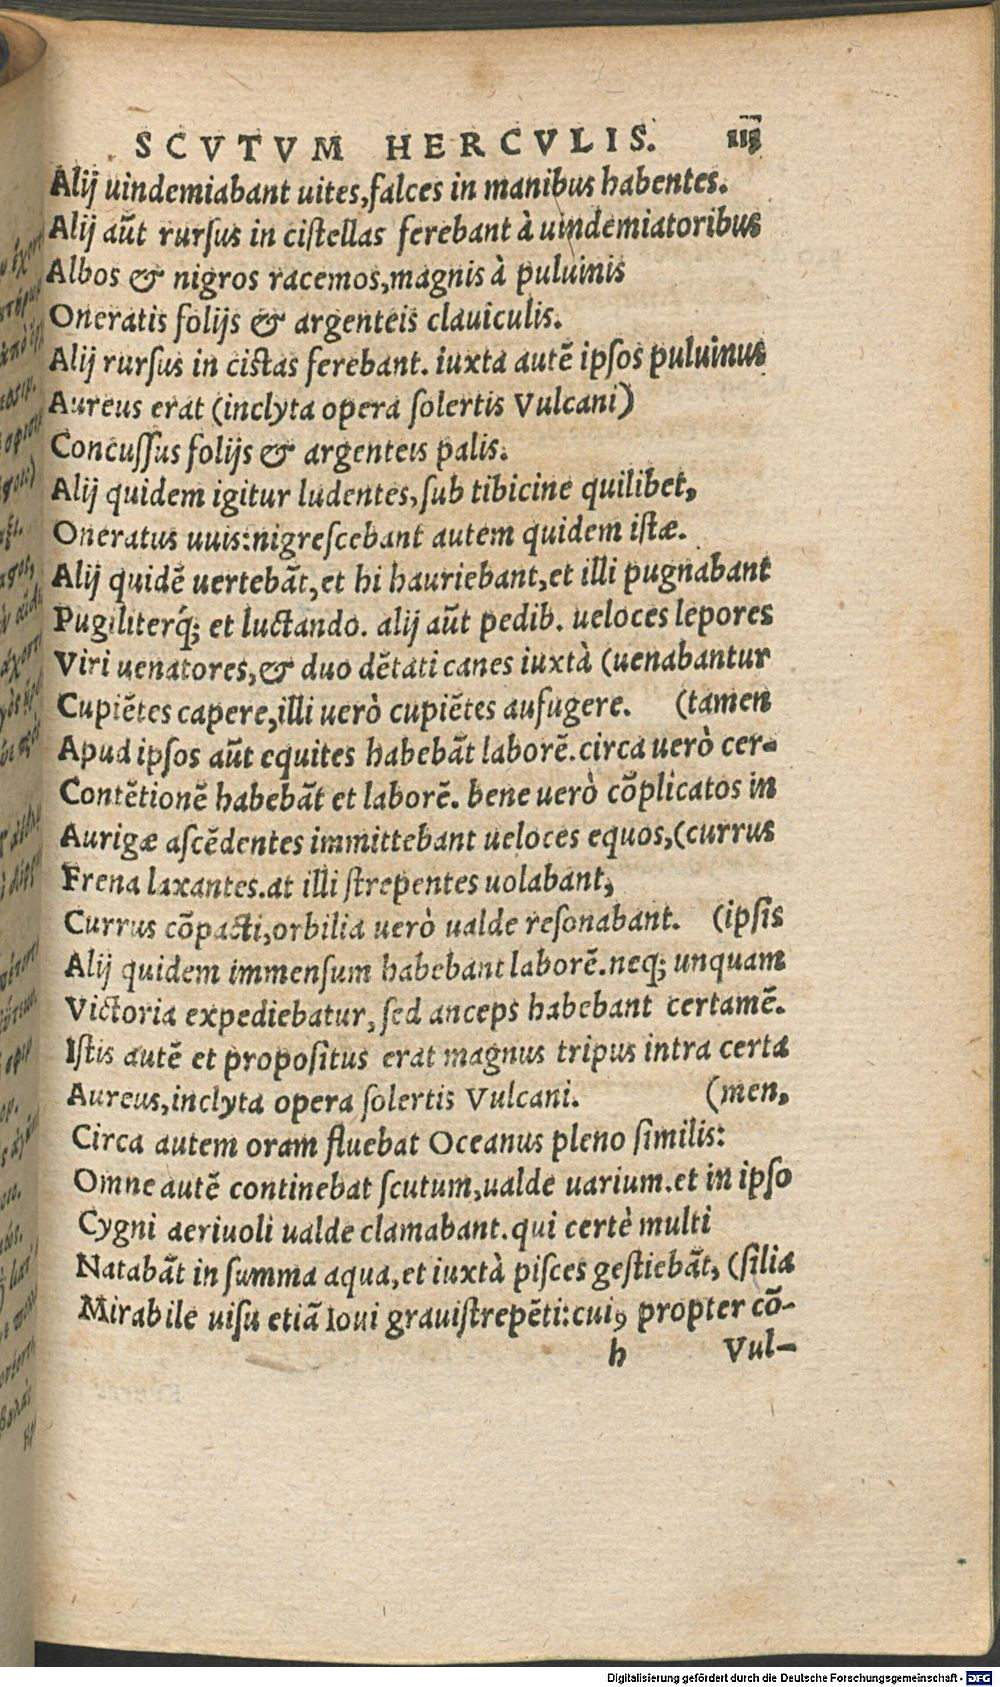 SCVTVM HERCVLIS. 113
Alij uindemiabant uites,falces in manibus habentes.
Alij aũt rurſus in ciſtellas ferebant à uindemiatoribus
Albos & nigros racemos,magnis à puluinis
Oneratis folijs & argenteis clauiculis.
Alij rurſus in ciſtas ferebant. iuxta autē ipſos puluinus
Aureus erat (inclyta opera ſolertis Vulcani)
Concuſſus folijs & argenteis palis.
Alij quidem igitur ludentes,ſub tibicine quilibet,
Oneratus uuis:nigreſcebant autem quidem iſtæ.
Alij quidē uertebãt,et hi hauriebant,et illi pugnabant
Pugiliterq́; et luctando. alij aũt pedib. ueloces lepores
Viri uenatores,& duo dētati canes iuxtà (uenabantur
Cupiētes capere,illi uerò cupiētes aufugere. (tamen
Apud ipſos aũt equites habebãt laborē.circa uerò cer-
Contētionē habebãt et laborē. bene uerò cõplicatos in
Aurigæ aſcēdentes immittebant ueloces equos,(currus
Frena laxantes.at illi ſtrepentes uolabant,
Currus cõpacti,orbilia uerò ualde reſonabant. (ipſis
Alij quidem immenſum habebant laborē.neq; unquam
Victoria expediebatur,ſed anceps habebant certamē.
Iſtis autē et propoſitus erat magnus tripus intra certa
Aureus,inclyta opera ſolertis Vulcani. (men,
Circa autem oram fluebat Oceanus pleno ſimilis:
Omne autē continebat ſcutum,ualde uarium.et in ipſo
Cygni aeriuoli ualde clamabant.qui certè multi
Natabãt in ſumma aqua,et iuxtà piſces geſtiebãt, (ſilia
Mirabile uiſu etiã Ioui grauiſtrepēti:cuiꝰ propter cõ-
h Vul-
Digitalisierung gefördert durch die Deutsche Forschungsgemeinschaft - DFG